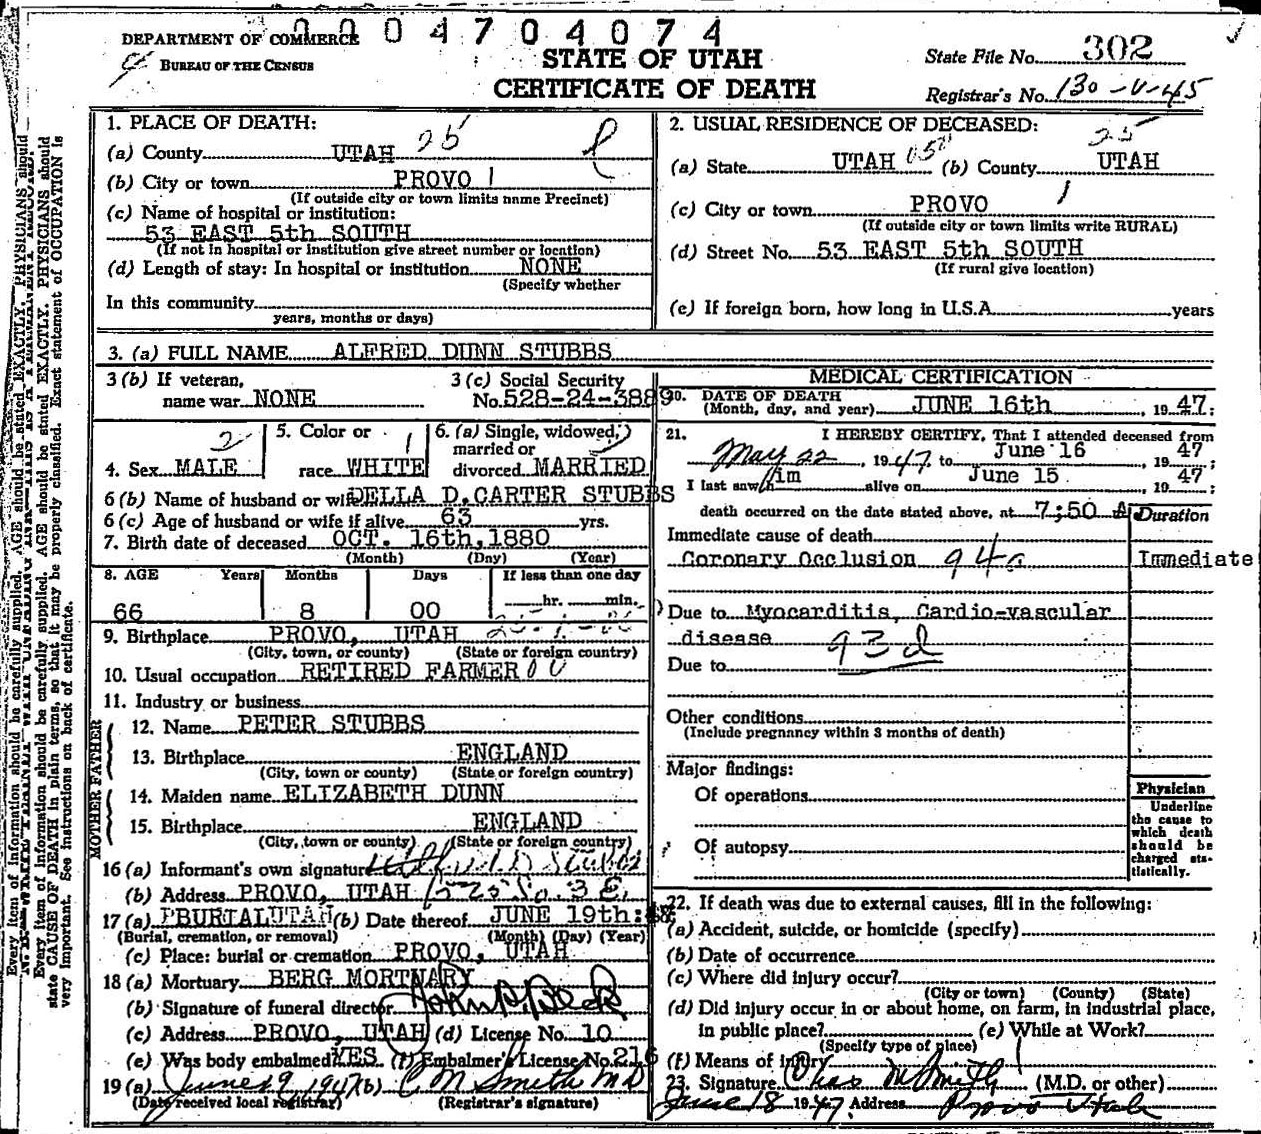 0004704074
DEPARTMENT OF COMMERCE
BUREAU OF THE CENSUS
STATE OF UTAH
CERTIFICATE OF DEATH
State File No. 302
Registrar's No. 130-V-45
1. PLACE OF DEATH:
(a) County UTAH 25
(b) City or town PROVO 1
(If outside city or town limits name Precinct)
(c) Name of hospital or institution:
53 EAST 5th SOUTH
(If not in hospital or institution give street number or location)
(d) Length of stay: In hospital or institution NONE
(Specify whether
In this community
years, months or days)
2. USUAL RESIDENCE OF DECEASED:
25
(a) State UTAH (b) County UTAH
(c) City or town PROVO 1
(If outside city or town limits write RURAL)
(d) Street No. 53 EAST 5th SOUTH
(If rural give location)
(e) If foreign born, how long in U.S.A. years
3. (a) FULL NAME ALFRED DUNN STUBBS
3 (b) If veteran,
name war NONE
3 (c) Social Security
No. 528-24-3889
4. Sex MALE 2
5. Color or 1
race WHITE
6. (a) Single, widowed,
married or
divorced MARRIED
6 (b) Name of husband or wife DELLA D. CARTER STUBBS
6 (c) Age of husband or wife if alive 63 yrs.
7. Birth date of deceased OCT. 16th, 1880
(Month) (Day) (Year)
8. AGE Years Months Days If less than one day
66 8 00 hr. min.
9. Birthplace PROVO, UTAH
(City, town, or county) (State or foreign country)
10. Usual occupation RETIRED FARMER
11. Industry or business
FATHER
12. Name PETER STUBBS
13. Birthplace ENGLAND
(City, town or county) (State or foreign country)
MOTHER
14. Maiden name ELIZABETH DUNN
15. Birthplace ENGLAND
(City, town or county) (State or foreign country)
16 (a) Informant's own signature Stubbs
(b) Address PROVO, UTAH 520 So. 3 E.
17 (a) BURIAL UTAH (b) Date thereof JUNE 19th:
(Burial, cremation, or removal) (Month) (Day) (Year)
(c) Place: burial or cremation PROVO, UTAH
18 (a) Mortuary BERG MORTUARY
(b) Signature of funeral director
(c) Address PROVO, UTAH (d) License No. 10
(e) Was body embalmed YES (f) Embalmer's License No. 216
19 (a) June 19 1947 (b) C M Smith MD
(Date received local registrar) (Registrar's signature)
MEDICAL CERTIFICATION
20. DATE OF DEATH
(Month, day, and year) JUNE 16th, 1947:
21. I HEREBY CERTIFY, That I attended deceased from
May 22, 1947, to June 16, 1947;
I last saw him alive on June 15, 1947;
death occurred on the date stated above, at 7:50 A
Duration
Immediate cause of death
Coronary Occlusion 94a Immediate
Due to Myocarditis, Cardio-vascular
disease 93d
Due to
Other conditions
(Include pregnancy within 3 months of death)
Major findings:
Of operations
Of autopsy
Physician
Underline
the cause to
which death
should be
charged sta-
tistically.
22. If death was due to external causes, fill in the following:
(a) Accident, suicide, or homicide (specify)
(b) Date of occurrence
(c) Where did injury occur?
(City or town) (County) (State)
(d) Did injury occur in or about home, on farm, in industrial place,
in public place? (e) While at Work?
(Specify type of place)
(f) Means of injury
23. Signature Chas M Smith (M.D. or other)
June 18 1947. Address Provo Utah
Every item of information should be carefully supplied. AGE should be stated EXACTLY. PHYSICIANS should
state CAUSE OF DEATH in plain terms, so that it may be properly classified. Exact statement of OCCUPATION is
very important. See instructions on back of certificate.